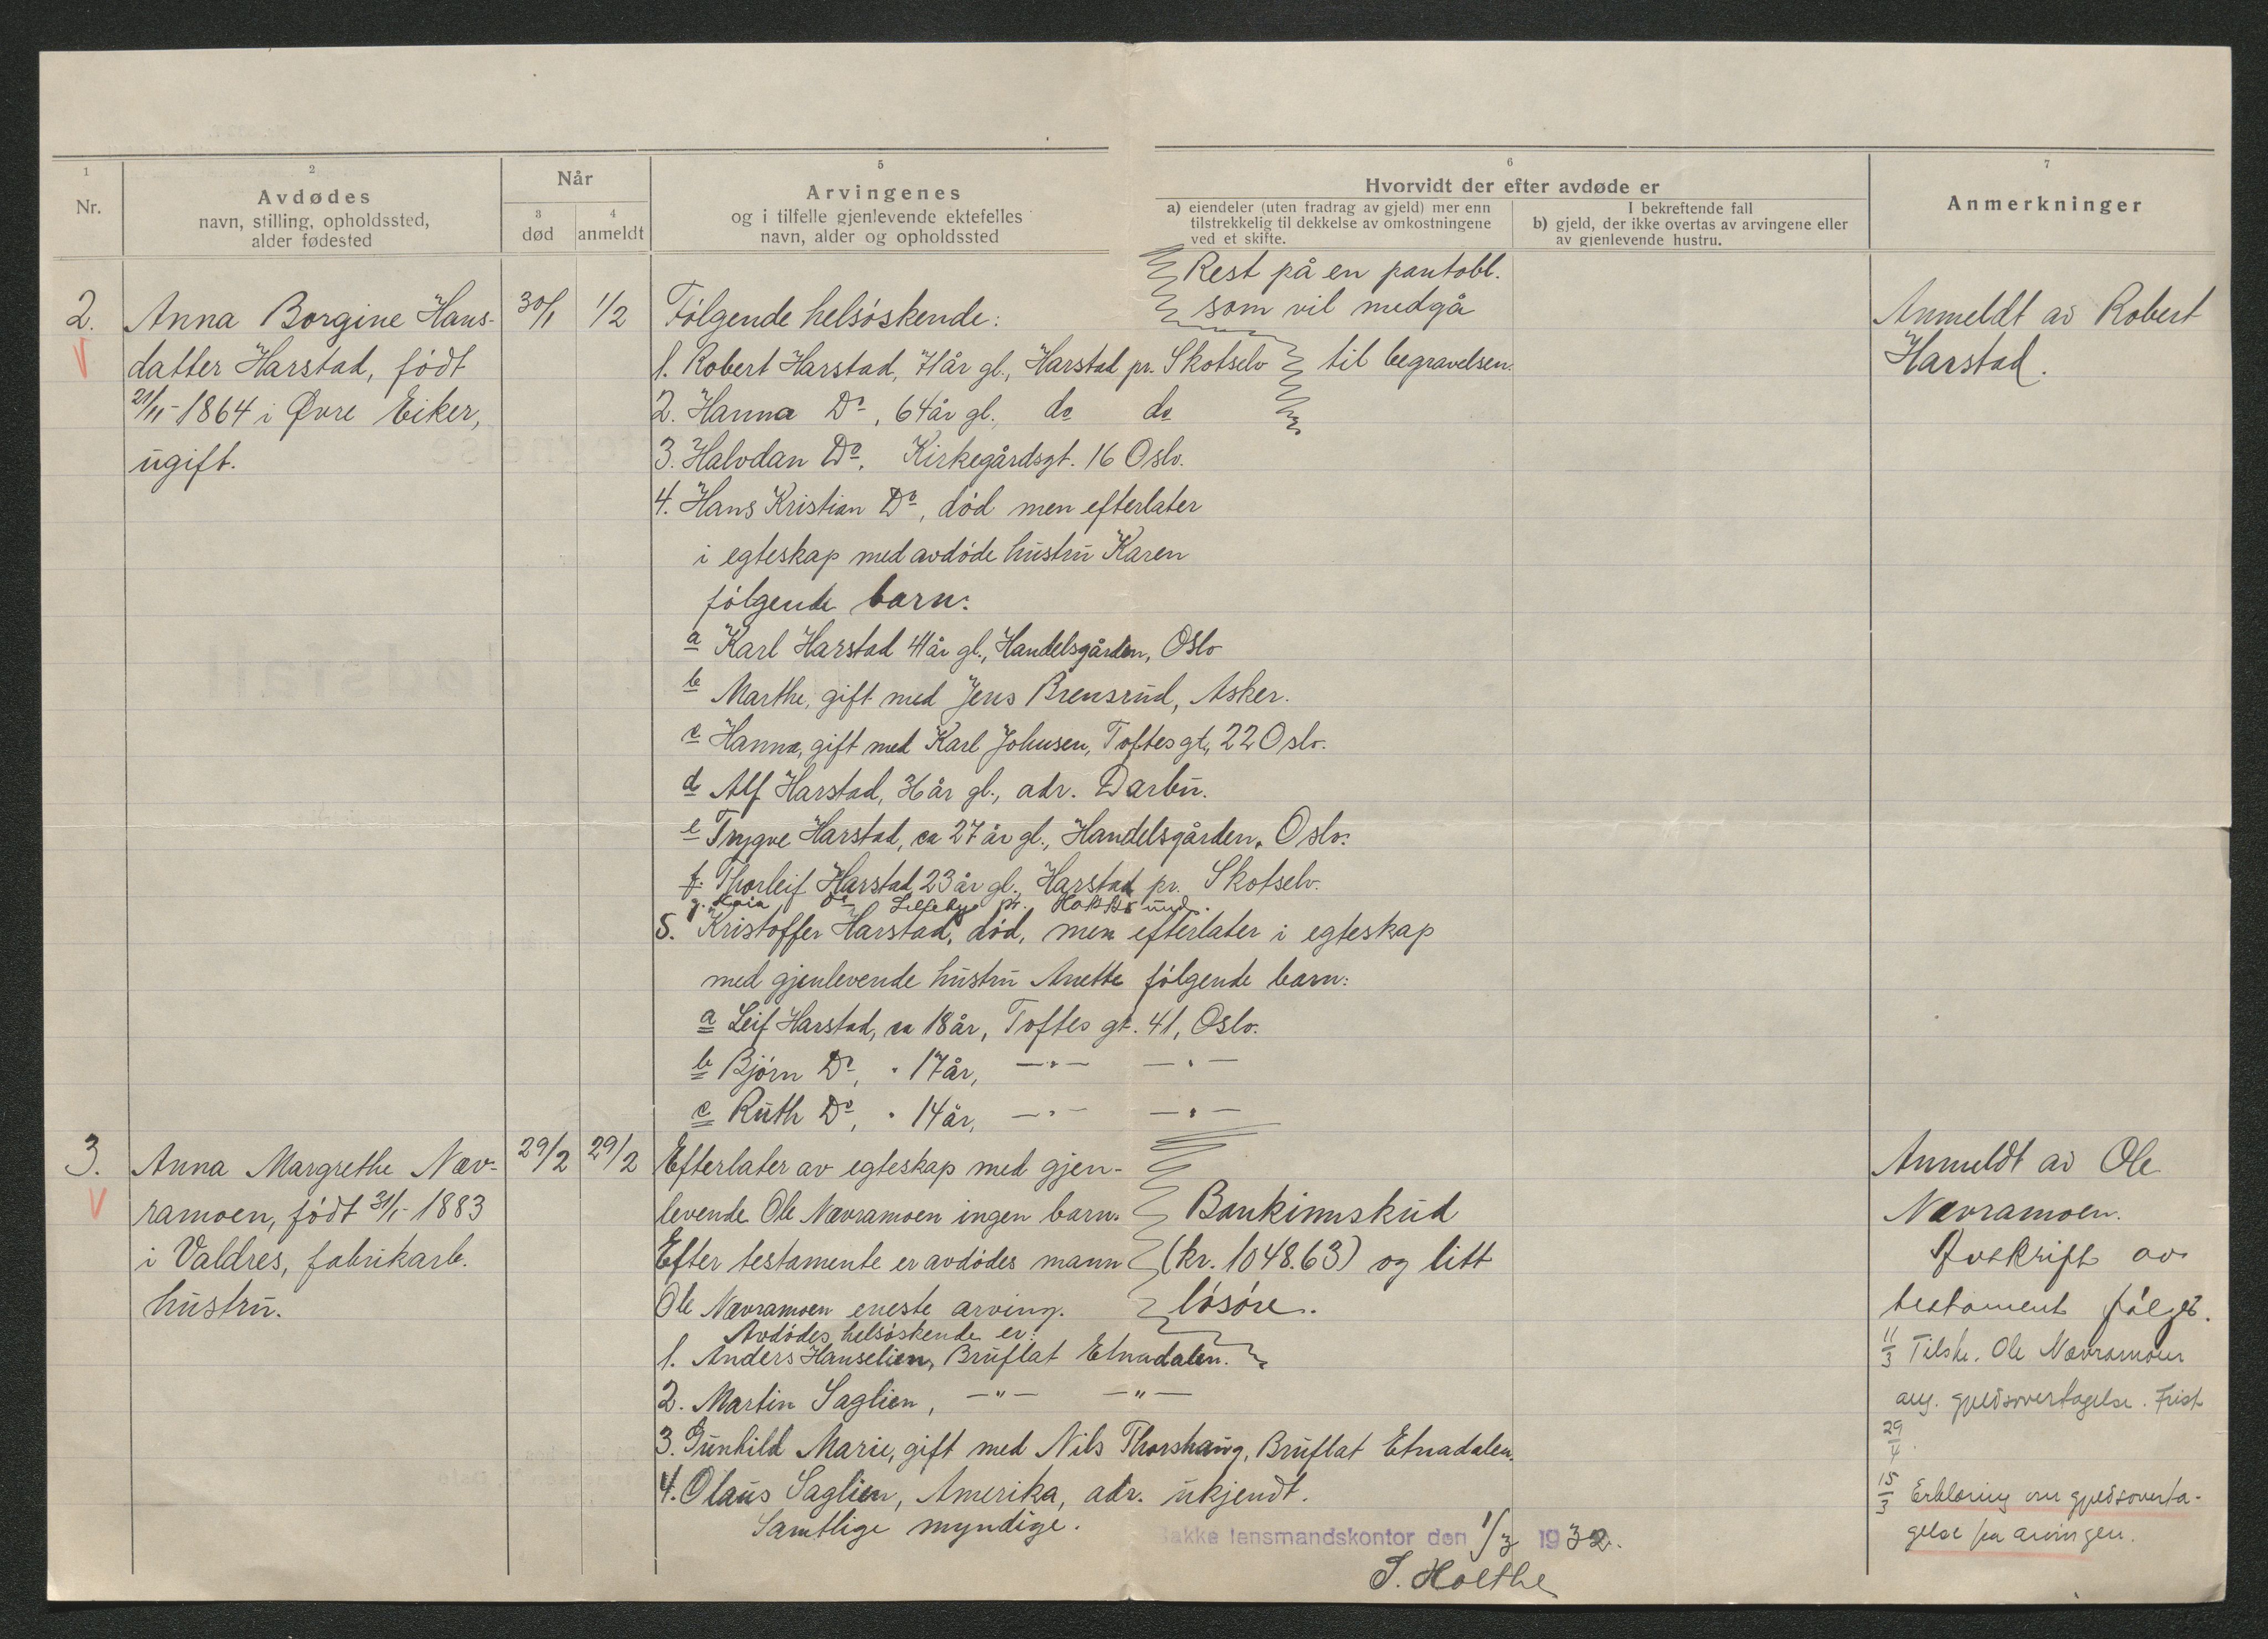 1
Nr.
2
Avdødes
navn, stilling, opholdssted,
alder fødested
Når
3
død
4
anmeldt
5
Arvingenes
og i tilfelle gjenlevende ektefelles
navn, alder og opholdssted
6
Hvorvidt der efter avdøde er
a) eiendeler (uten fradrag av gjeld) mer enn
tilstrekkelig til dekkelse av omkostningene
ved et skifte.
I bekreftende fall
b) gjeld, der ikke overtas av arvingene eller
av gjenlevende hustru.
7
Anmerkninger
2.
Anna Borgine Hans-
datter Harstad, født
21/11-1864 i Øvre Eiker,
ugift.
30/1
1/2
Følgende helsøskende:
1. Robert Harstad, 71 år gl., Harstad pr. Skotselv
2. Hanna Do, 64 år gl., do do
3. Halvdan Do, Kirkegårdsgt. 16 Oslo.
4. Hans Kristian Do, død men efterlater
i egteskap med avdøde hustru Karen
følgende barn:
a Karl Harstad 41 år gl., Handelsgården, Oslo
b Marthe, gift med Jens Brensrud, Asker.
c Hanna, gift med Karl Johnsen, Toftesgt. 22 Oslo.
d Alf Harstad, 36 år gl., adr. Darbu.
e Trygve Harstad, ca 27 år gl., Handelsgården, Oslo.
f. Thorleif Harstad, 23 år gl., Harstad pr. Skotselv.
g. Do pr. Hokksund.
5. Kristoffer Harstad, død, men efterlater i egteskap
med gjenlevende hustru Anette følgende barn:
a Leif Harstad, ca 18 år, Toftes gt. 41, Oslo.
b Bjørn Do, " 17 år, —"— —"—
c Ruth Do, " 14 år, —"— —"—
Rest på en pantobl.
som vil medgå
til begravelsen.
Anmeldt av Robert
Harstad.
3.
Anna Margrethe Næv-
ramoen, født 31/1-1883
i Valdres, fabrikarb.
hustru.
29/2
29/2
Efterlater av egteskap med gjen-
levende Ole Nævramoen ingen barn.
Efter testamente er avdødes mann
Ole Nævramoen eneste arving.
Avdødes helsøskende er:
1. Anders Hanselien, Bruflat Etnadalen.
2. Martin Saglien, —"— —"—
3. Gunhild Marie, gift med Nils Thorshaug, Bruflat Etnadalen.
4. Olaus Saglien, Amerika, adr. ukjendt.
Samtlige myndige.
Bankinnskud
(kr. 1048.63) og litt
løsøre.
Anmeldt av Ole
Nævramoen.
Avskrift av
testament følger.
11/3 Tilskr. Ole Nævramoen
ang. gjeldsovertagelse. Frist
29/4.
15/3 Erklæring om gjeldsoverta-
gelse fra arvingen.
Bakke lensmandskontor den 1/3 1932.
S. Holthe